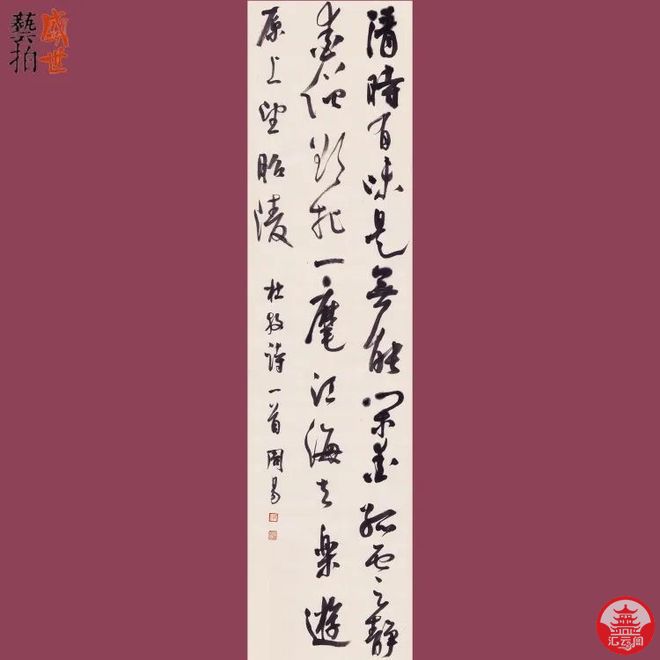 盛世
藝拍
清時有味是無能閑愛孤雲之靜
愛僧欲把一麾江海去樂遊
原上望昭陵 杜牧詩一首 周易
汇云阁